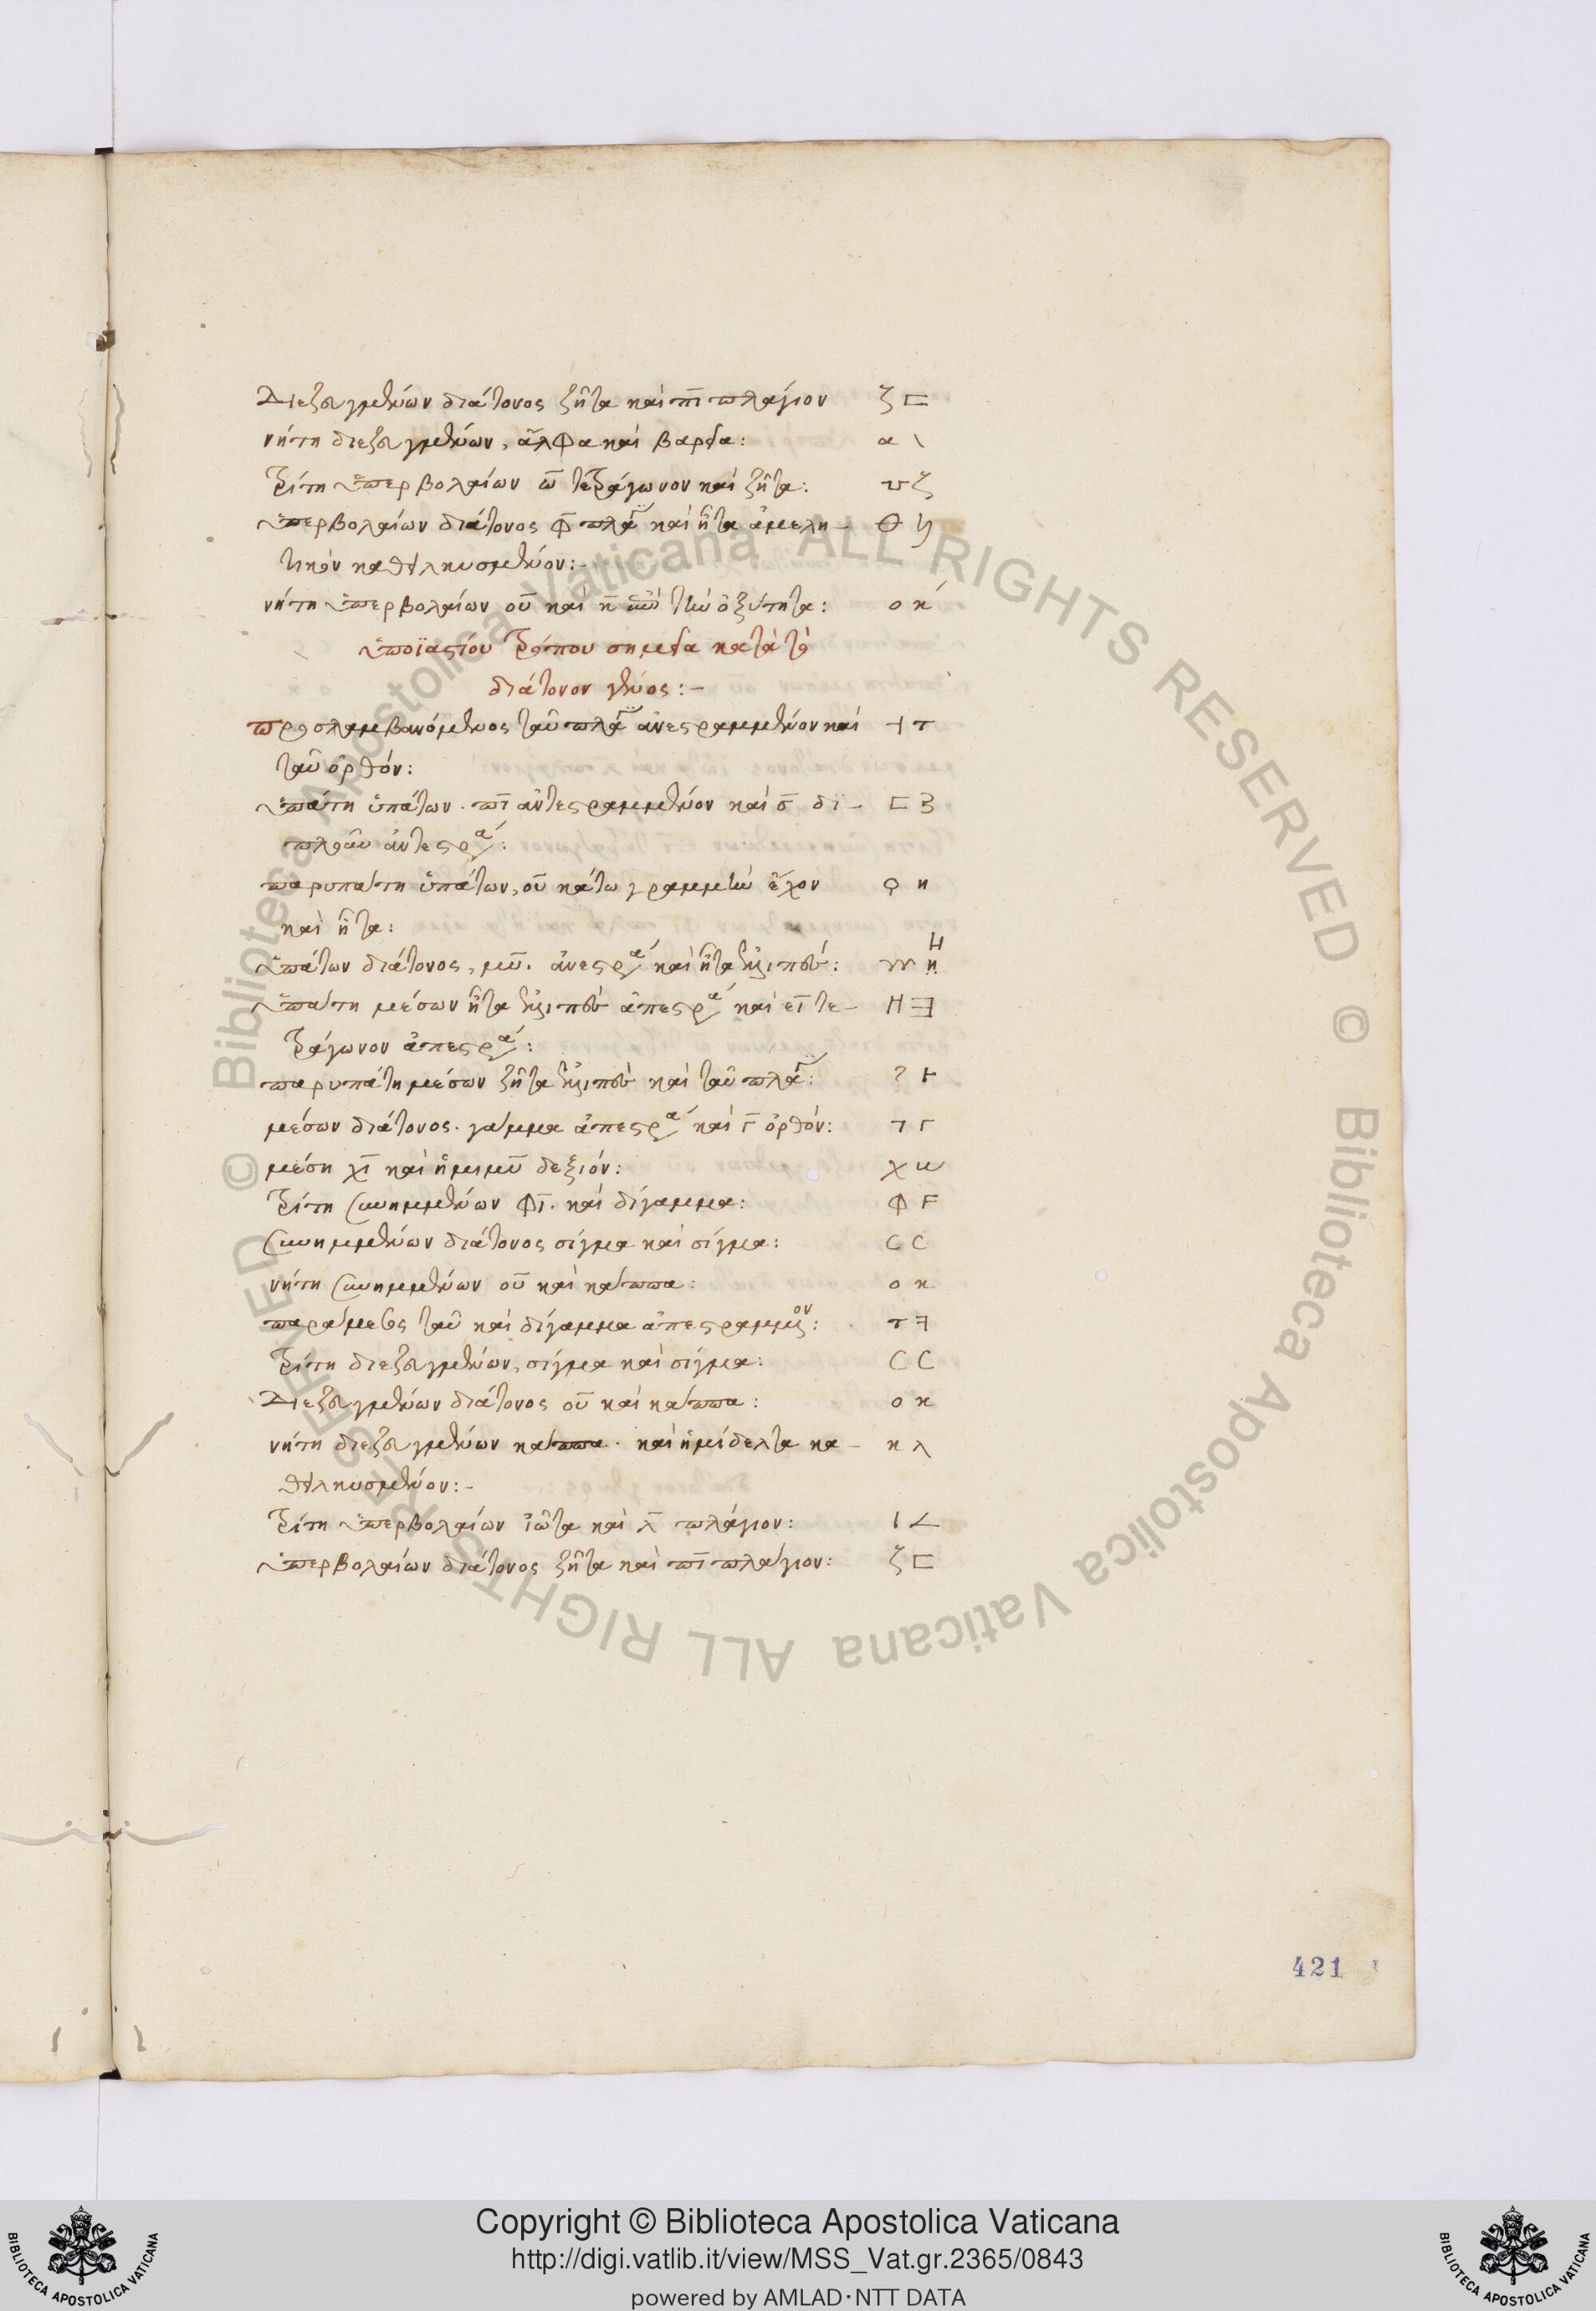 Διεζευγμένων διάτονος ζῆτα καὶ πῖ πλάγιον ζ ⊏
νήτη διεζευγμένων, ἄλφα καὶ βαρεῖα: α \
Τρίτη ὑπερβολαίων ω̅ τετράγωνον καὶ ζῆτα: ʊ ζ
ὑπερβολαίων διάτονος φ̅ πλάγ καὶ ἦτα ἀμελη-
τικὸν καθειλκυσμένον:-
νήτη ὑπερβολαίων οὗ καὶ κ̅ ἐπὶ τὴν ὀξύτητα: ο κ´
ὑποϊαστίου τρόπου σημεῖα κατὰ τὸ
διάτονον γένος:-
προσλαμβανόμενος ταῦ πλάγ ἀνεστραμμένον καὶ ⊣ τ
ταῦ ὀρθόν:
ὑπάτη ὑπάτων. πῖ ἀντεστραμμένον καὶ σ̅ δι- ⊏ 3
πλοῦν ἀντεστρα:
παρυπάτη ὑπάτων, οὗ κάτω γραμμὴν ἔχον ϙ η
καὶ ἦτα:
ὑπάτων διάτονος, μῦ. ἀνεστρα καὶ ἦτα ἐλλιπὲς:
ὑπάτη μέσων ἦτα ἐλλιπὲς ἀπεστρα καὶ εῖ τε- Η Ǝ
τράγωνον ἀπεστρα:
παρυπάτη μέσων ζῆτα ἐλλιπὲς καὶ ταῦ πλάγ: ? Ͱ
μέσων διάτονος. γάμμα ἀπεστρα καὶ Γ ὀρθόν: ˥ Γ
μέση χῖ καὶ ἡμιμῦ δεξιόν: χ
Τρίτη συνημμένων φῖ. καὶ δίγαμμα: φ F
συνημμένων διάτονος σίγμα καὶ σίγμα: C C
νήτη συνημμένων οὗ καὶ κάππα: ο κ
παράμεσος ταῦ καὶ δίγαμμα ἀπεστραμμον: τ ꟻ
Τρίτη διεζευγμένων, σίγμα καὶ σίγμα: C C
Διεζευγμένων διάτονος οὗ καὶ κάππα: ο κ
νήτη διεζευγμένων κάππα. καὶ ἡμίδελτα κα- κ λ
θειλκυσμένον:-
Τρίτη ὑπερβολαίων ἰῶτα καὶ λ̅ πλάγιον: Ι <
ὑπερβολαίων διάτονος ζῆτα καὶ πῖ πλάγιον: ζ ⊏
421
© Biblioteca Apostolica Vaticana ALL RIGHTS RESERVED © Biblioteca Apostolica Vaticana ALL RIGHTS RESERVED
BIBLIOTECA APOSTOLICA VATICANA
Copyright © Biblioteca Apostolica Vaticana
http://digi.vatlib.it/view/MSS_Vat.gr.2365/0843
powered by AMLAD·NTT DATA
BIBLIOTECA APOSTOLICA VATICANA